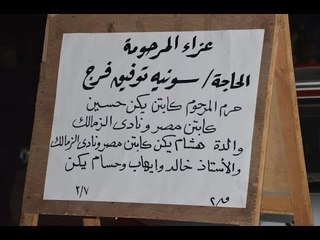 عزاء المرحومة
الحاجة / سونيه توفيق فرج
حرم المرحوم كابتن يكن حسين
كابتن مصر ونادى الزمالك
والدة هشام يكن كابتن مصر ونادى الزمالك
والأستاذ خالد وايهاب وحسام يكن
٢/٧